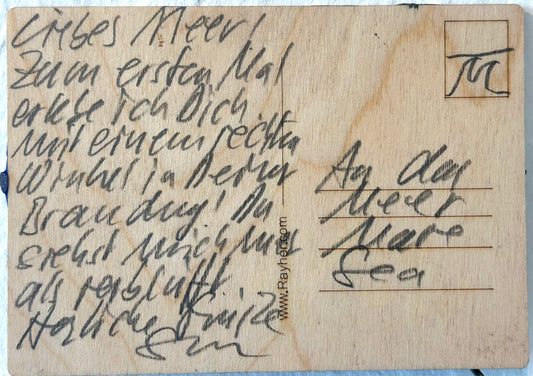 Liebes Meer!
Zum ersten Mal
erlebe ich Dich
mit einem rechten
Winkel in Deiner
Brandung! Du
siehst mich hier
als
Herzliche Grüße
An das
Meer
Mare
Sea
www.Rayher.com